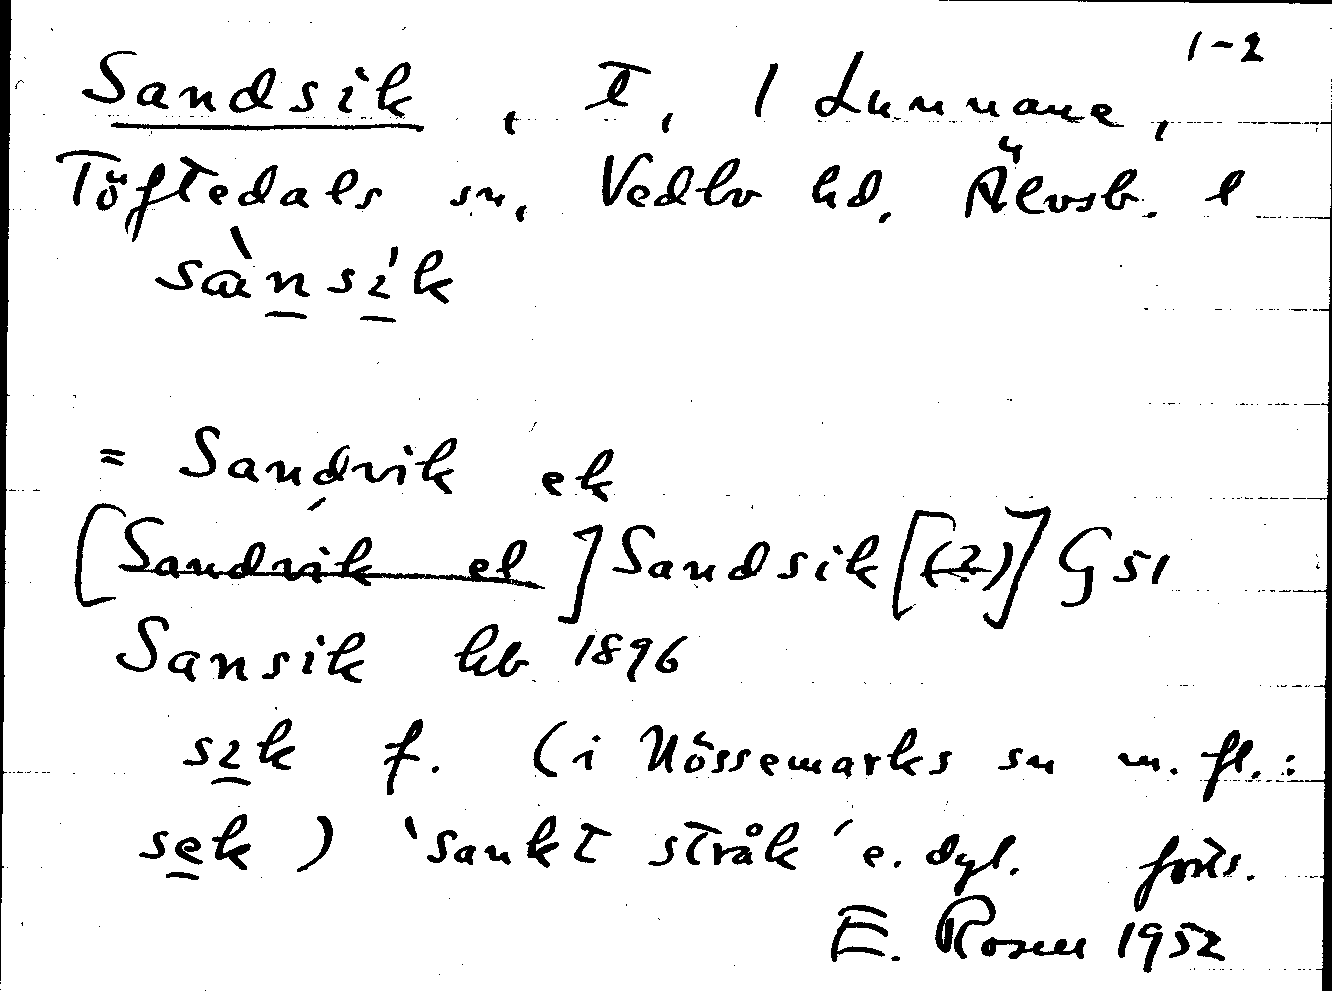 1-2
Sandsik, t, / Lunnane,
Töftedals sn, Vedbo hd, Älvsb. l
sànsik
= Sandvik ek
[Sandvik el] Sandsik [(?)] G 51
Sansik hb 1896
sik f. (i Nössemarks sn m. fl.:
sek) 'sankt stråk' e. dyl. forts.
E. Rosell 1952